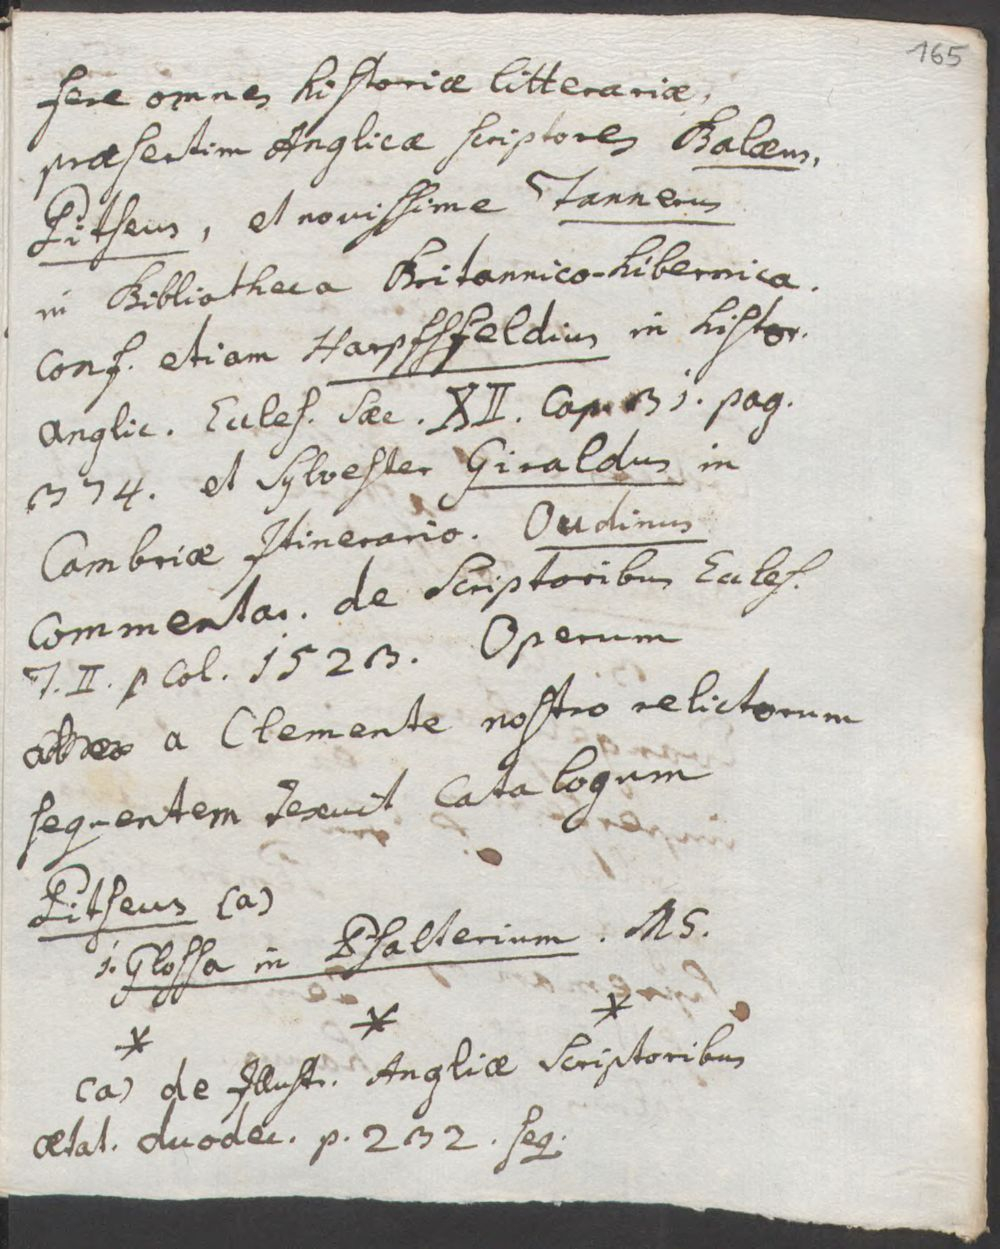 165
fere omnes historiæ litterariæ,
præsertim Anglicæ scriptores Balæus,
Pitseus, et novissime Tannerus
in Bibliotheca Britannico-hibernica.
conf. etiam Harpssfeldius in histor.
anglic. Eccles. Sæc. XII. Cap. 31. pag.
334. et Sylvester Giraldus in
Cambriæ Itinerario. Oudinus
commentar. de Scriptoribus Eccles.
T. II. p col. 1523. Operum
a Clemente nostro relictorum
sequentem texuit Catalogum
Pitseus (a)
1. Glossa in Psalterium. MS.
* * *
(a) de Illustr. Angliæ Scriptoribus
ætat. duodec. p. 232. seq.